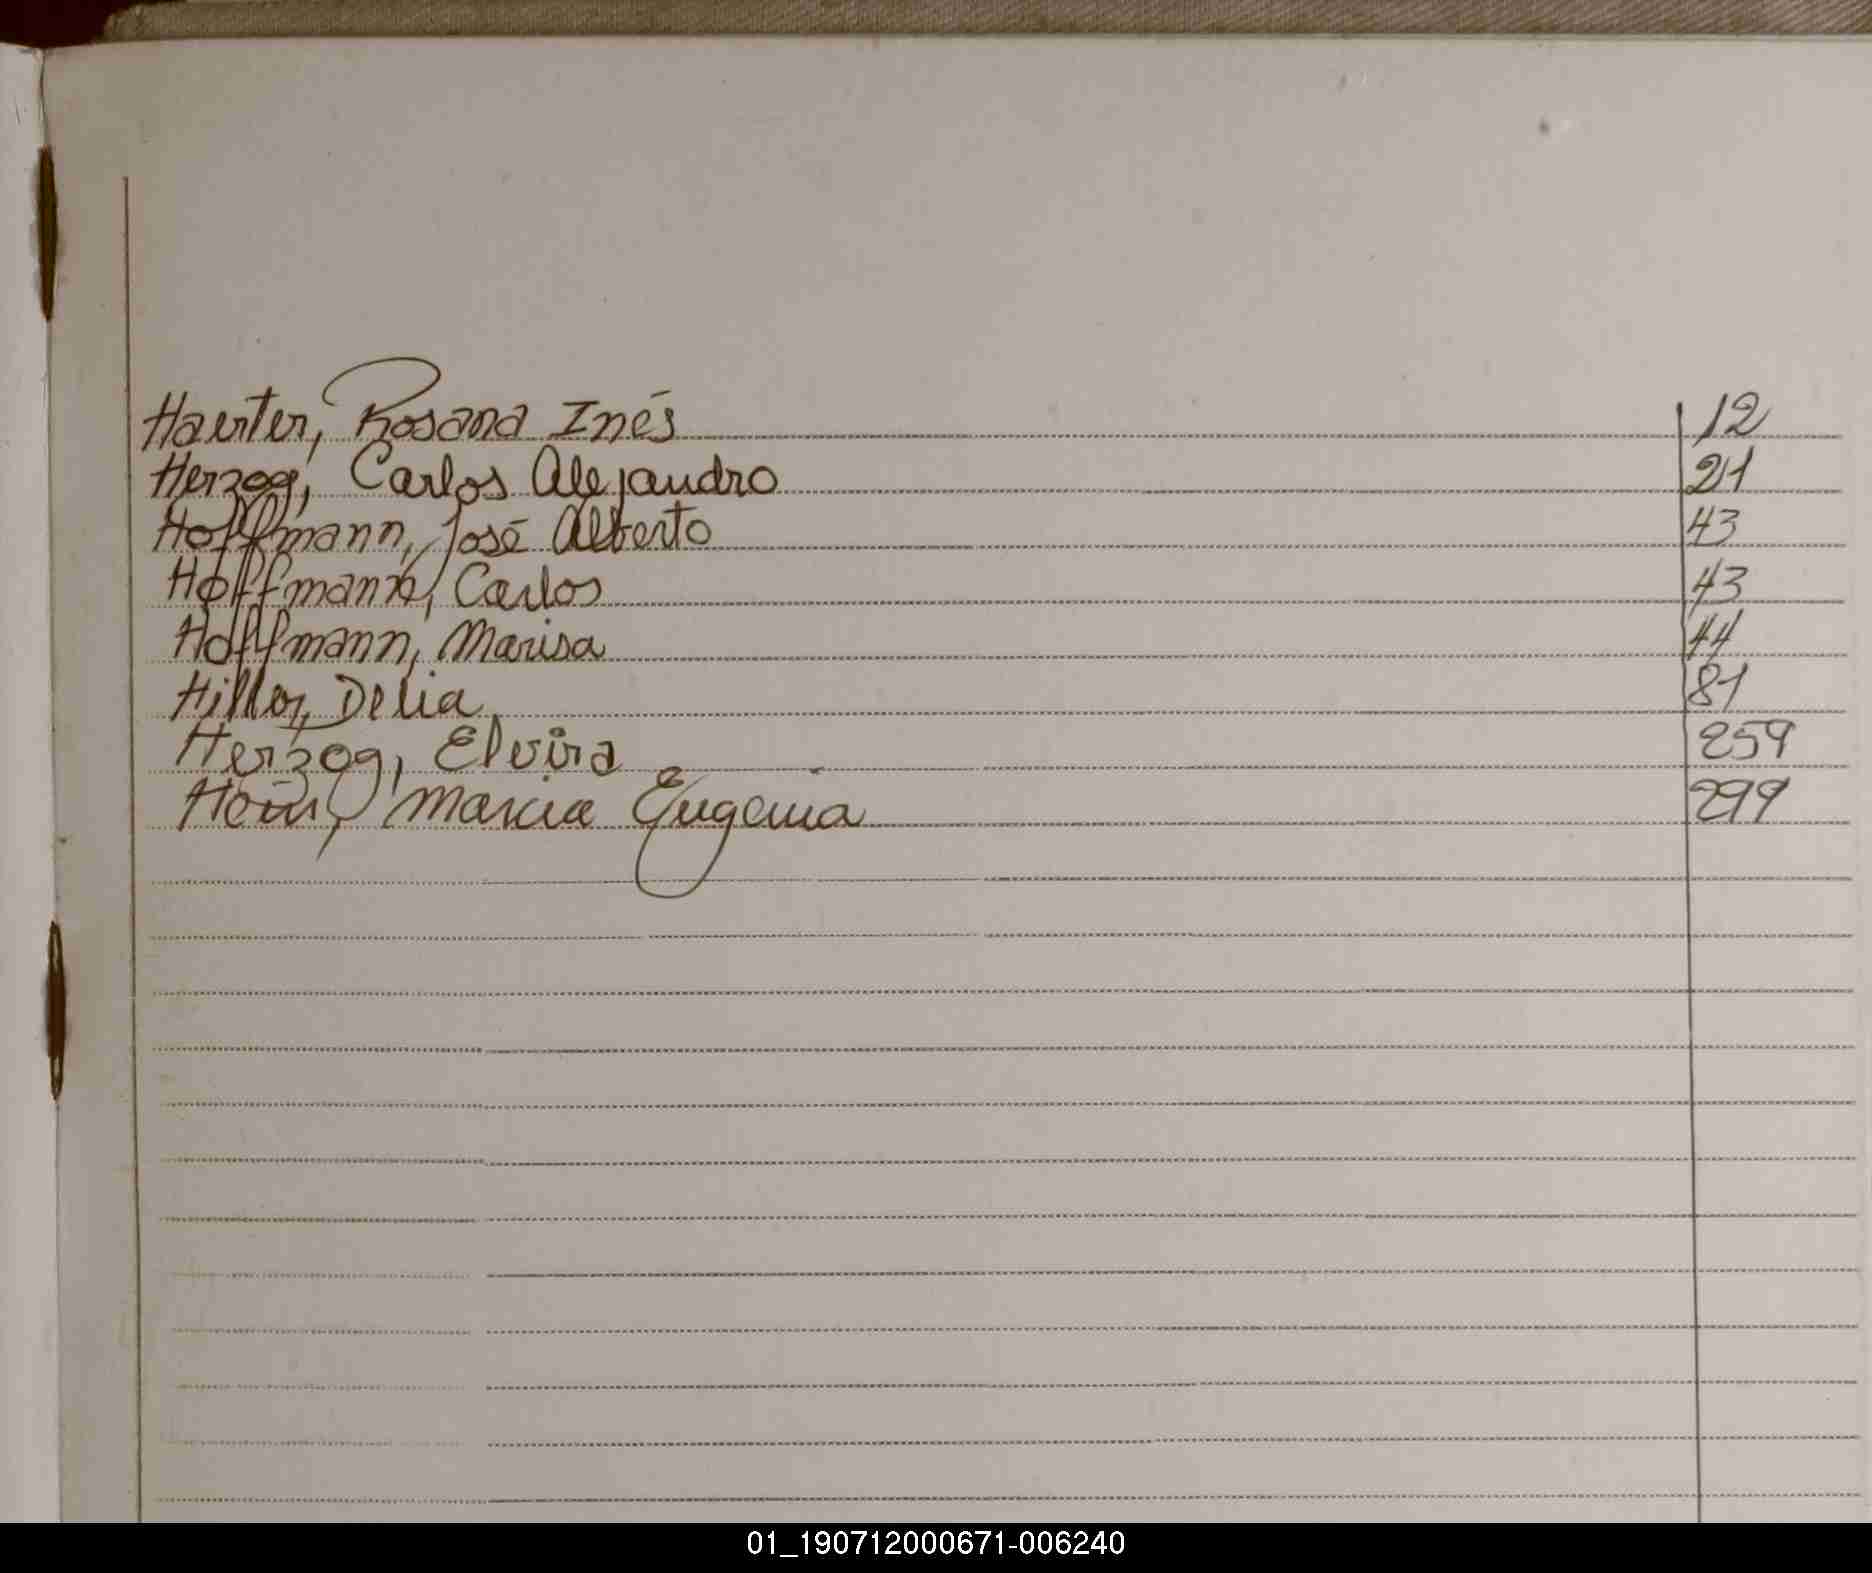 Haerter, Rosana Inés 12
Herzog, Carlos Alejandro 21
Hoffmann, José Alberto 43
Hoffmann, Carlos 43
Hoffmann, Marisa 44
Hiller, Delia 81
Herzog, Elvira 259
Hein, María Eugenia 299
01_190712000671-006240